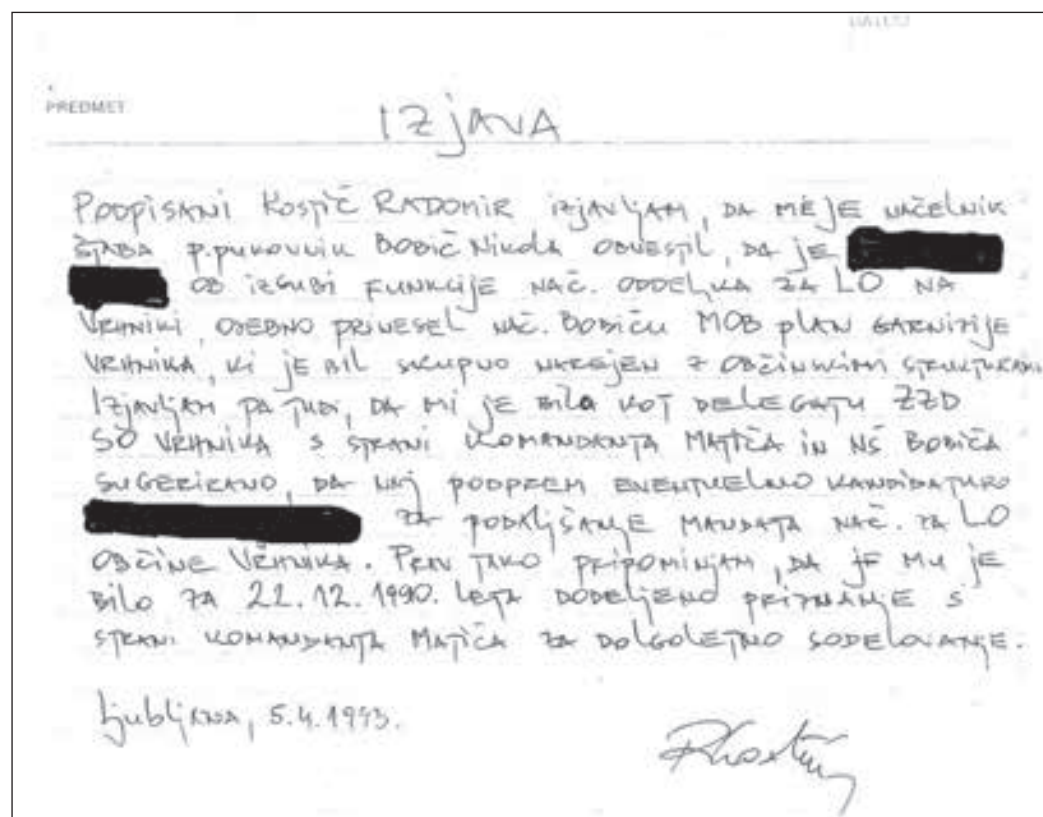 PREDMET
IZJAVA
PODPISANI KOSTIČ RADOMIR IZJAVLJAM, DA ME JE NAČELNIK
ŠTABA P.PUKOVNIK BOBIČ NIKOLA OBVESTIL, DA JE
OB IZGUBI FUNKCIJE NAČ. ODDELKA ZA LO NA
VRHNIKI, OSEBNO PRINESEL NAČ. BOBIČU MOB PLAN GARNIZIJE
VRHNIKA, KI JE BIL SKUPNO NAREJEN Z OBČINSKIMI STRUKTURAMI
IZJAVLJAM PA TUDI, DA MI JE BILA KOT DELEGATU ZZD
SO VRHNIKA S STRANI KOMANDANTA MATIČA IN NŠ BOBIČA
SUGERIRANO, DA NAJ PODPREM EVENTUELNO KANDIDATURO
ZA PODALJŠANJE MANDATA NAČ. ZA LO
OBČINE VRHNIKA. PRAV TAKO PRIPOMINJAM, DA JE MU JE
BILO ZA 22.12.1990. LETA DODELJENO PRIZNANJE S
STRANI KOMANDANTA MATIČA ZA DOLGOLETNO SODELOVANJE.
Ljubljana, 5.4.1993.
RKostič